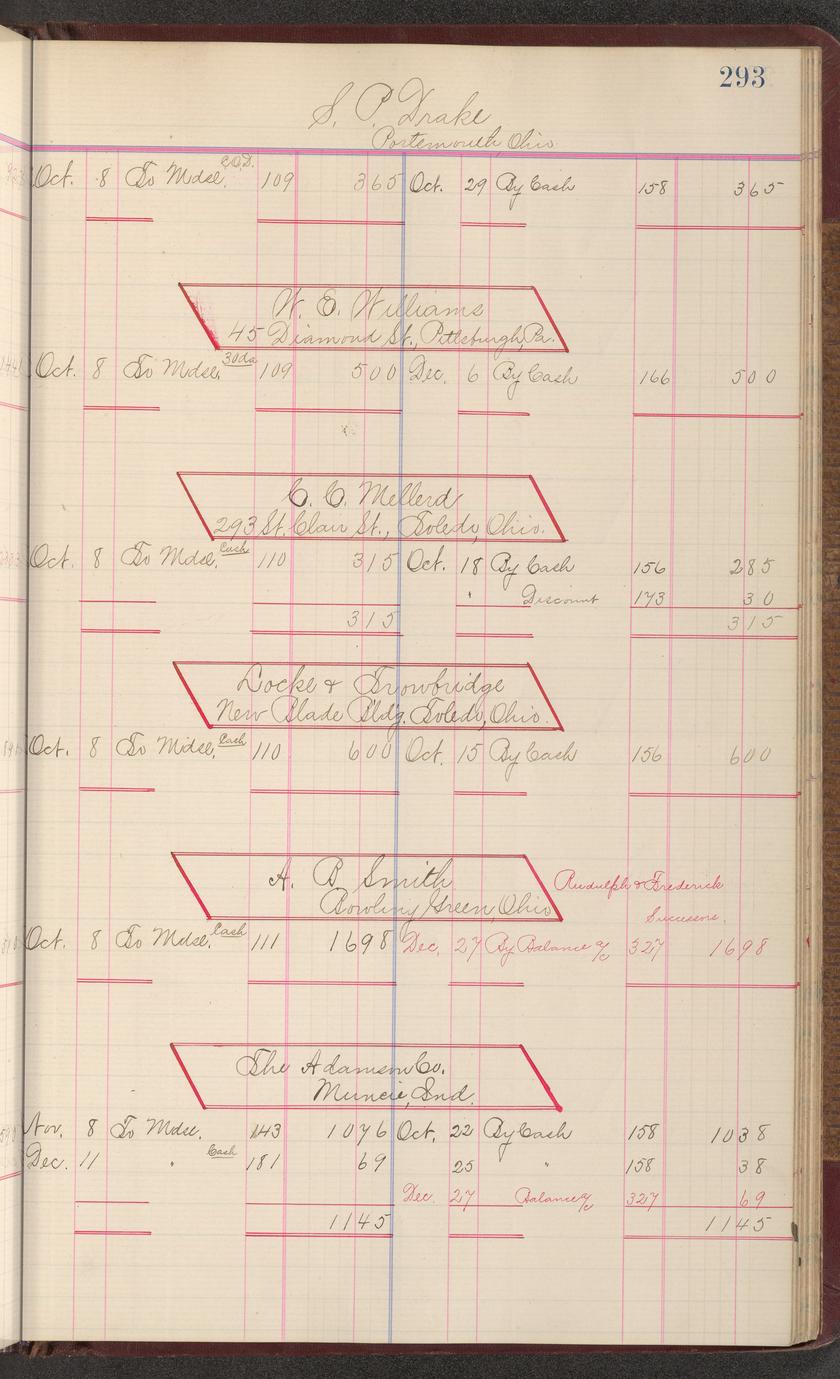 293
S. P. Drake
Portsmouth, Ohio
C.O.D.
Oct. 8 To Mdse. 109 365 Oct. 29 By Cash 158 365
W. E. Williams
45 Diamond St., Pittsburgh, Pa.
30 da
Oct. 8 To Mdse. 109 500 Dec. 6 By Cash 166 500
C. C. Mellerd
293 St. Clair St., Toledo, Ohio.
Cash
Oct. 8 To Mdse. 110 315 Oct. 18 By Cash 156 285
" Discount 173 30
315 315
Locke & Trowbridge
New Blade Bldg. Toledo, Ohio.
Cash
Oct. 8 To Mdse. 110 600 Oct. 15 By Cash 156 600
A. B Smith
Bowling Green, Ohio
Rudulph & Frederick
Successors.
Cash
Oct. 8 To Mdse. 111 1698 Dec. 27 By Balance a/c 327 1698
The Adamson Co.
Muncie, Ind.
Nov. 8 To Mdse. 143 1076 Oct. 22 By Cash 158 1038
Dec. 11 " Cash 181 69 25 " 158 38
Dec. 27 Balance a/c 327 69
1145 1145